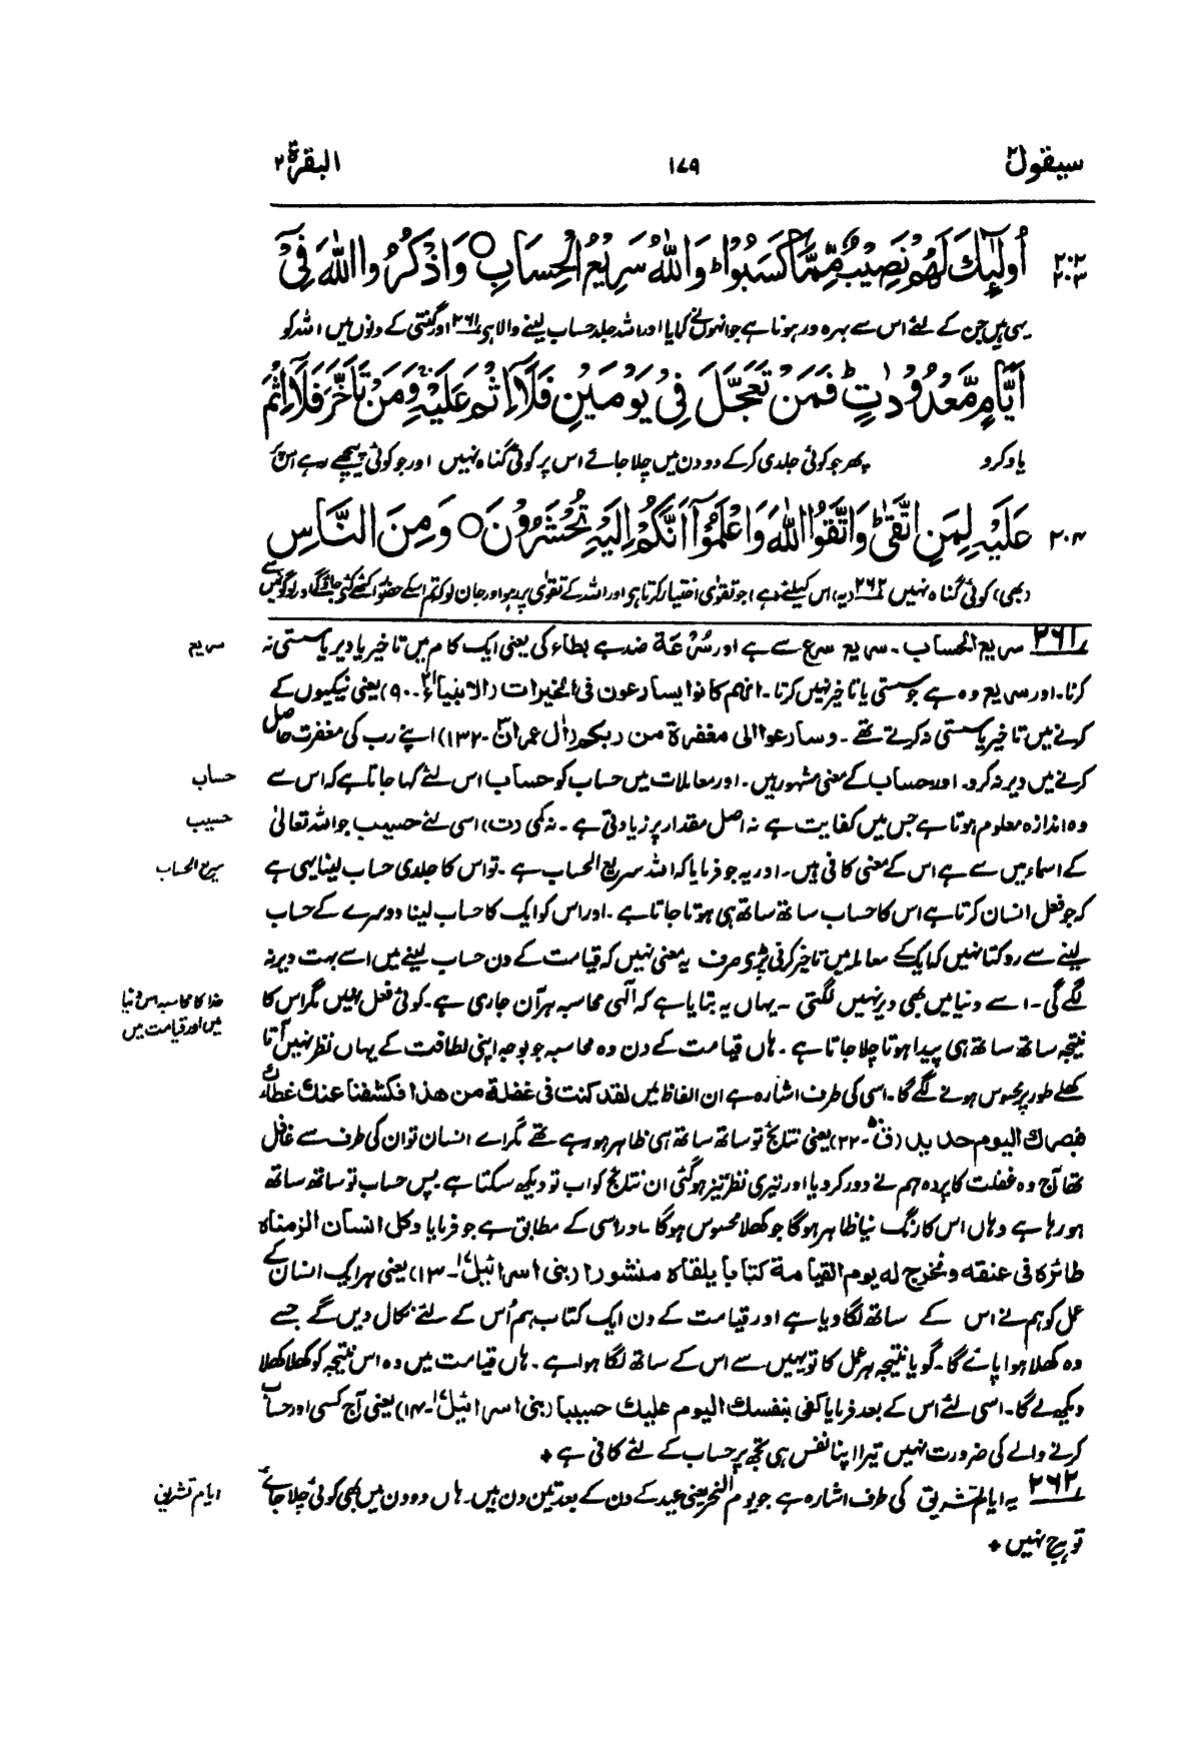 سیقول ۲ ۱۷۹ البقرة ۲
۲۰۲ ۲۰۳ اُولٰٓئِكَ لَهُمْ نَصِيْبٌ مِّمَّا كَسَبُوْا ؕ وَاللّٰهُ سَرِيْعُ الْحِسَابِ ○ وَاذْكُرُوا اللّٰهَ فِيْٓ
یہی ہیں جن کے لئے اس سے بہرہ ور ہونا ہے جو انہوں نے کمایا اور اللہ جلد حساب لینے والا ہے ۲۶۱ اور گنتی کے دنوں میں اللہ کو
اَيَّامٍ مَّعْدُوْدٰتٍ ؕ فَمَنْ تَعَجَّلَ فِيْ يَوْمَيْنِ فَلَآ اِثْمَ عَلَيْهِ ۚ وَمَنْ تَاَخَّرَ فَلَآ اِثْمَ
یاد کرو پھر جو کوئی جلدی کرکے دو دن میں چلا جائے اس پر کوئی گناہ نہیں اور جو کوئی پیچھے رہے اس پر
۲۰۴ عَلَيْهِ لِمَنِ اتَّقٰى ؕ وَاتَّقُوا اللّٰهَ وَاعْلَمُوْٓا اَنَّكُمْ اِلَيْهِ تُحْشَرُوْنَ ○ وَمِنَ النَّاسِ
(بھی) کوئی گناہ نہیں ۲۶۲ (یہ) اس کیلئے (ہے) جو تقویٰ اختیار کرتا ہو اور اللہ کے تقویٰ پر رہو اور جان لو کہ تم اسکے حضور اکٹھے کئے جاؤگے اور لوگوں میں سے
۲۶۱ سریع الحساب۔ سریع سرع سے ہے اور سُرْعَة ضد ہے بطاء کی یعنی ایک کام میں تاخیر یا دیر یا سستی نہ
سریع
کرنا۔ اور سریع وہ ہے جو سستی یا تاخیر نہیں کرتا۔ انھم کانوا یسارعون فی الخیرات (الانبیاء ۲۱۔۹۰) یعنی نیکیوں کے
کرنے میں تاخیر یا سستی نہ کرتے تھے۔ وسارعوا الی مغفرة من ربکم (اٰل عمران ۳۔۱۳۲) اپنے رب کی مغفرت حاصل
کرنے میں دیر نہ کرو۔ اور حساب کے معنی مشہور ہیں۔ اور معاملات میں حساب کو حساب اس لئے کہا جاتا ہے کہ اس سے
حساب
وہ اندازہ معلوم ہوتا ہے جس میں کفایت ہے نہ اصل مقدار پر زیادتی ہے۔ نہ کمی (ت) اسی لئے حسیب جو اللہ تعالیٰ
حسیب
کے اسماء میں سے ہے اس کے معنی کافی ہیں۔ اور یہ جو فرمایا کہ اللہ سریع الحساب ہے۔ تو اس کا جلدی حساب لینا یہی ہے
سریع الحساب
کہ جو فعل انسان کرتا ہے اس کا حساب ساتھ ساتھ ہی ہوتا جاتا ہے۔ اور اس کو ایک کا حساب لینا دوسرے کے حساب
لینے سے روکتا نہیں کہ ایک کے معاملہ میں تاخیر کرنی پڑے صرف یہ معنی نہیں کہ قیامت کے دن حساب لینے میں اسے بہت دیر نہ
لگے گی۔ اسے دنیا میں بھی دیر نہیں لگتی۔ یہاں یہ بتایا ہے کہ الٰہی محاسبہ ہر آن جاری ہے۔ کوئی فعل نہیں مگر اس کا
خدا کا محاسبہ اس دنیا
میں اور قیامت میں
نتیجہ ساتھ ساتھ ہی پیدا ہوتا چلا جاتا ہے۔ ہاں قیامت کے دن وہ محاسبہ جو بوجہ اپنی لطافت کے یہاں نظر نہیں آتا
کھلے طور پر محسوس ہونے لگے گا۔ اسی کی طرف اشارہ ہے ان الفاظ میں لقد کنت فی غفلة من ھذا فکشفنا عنك غطاءك
فبصرك الیوم حدید (قٓ ۵۰۔۲۲) یعنی نتائج تو ساتھ ساتھ ہی ظاہر ہو رہے تھے مگر اے انسان تو ان کی طرف سے غافل
تھا آج وہ غفلت کا پردہ ہم نے دور کر دیا اور تیری نظر تیز ہو گئی ان نتائج کو اب تو دیکھ سکتا ہے پس حساب تو ساتھ ساتھ
ہو رہا ہے وہاں اس کا رنگ نیا ظاہر ہوگا جو کھلا محسوس ہوگا۔ اور اسی کے مطابق ہے جو فرمایا وکل انسان الزمناہ
طائرہ فی عنقه ونخرج له یوم القیامة کتابا یلقاہ منشورا (بنی اسرائیل ۱۷۔۱۳) یعنی ہر ایک انسان کے
عمل کو ہم نے اس کے ساتھ لگا دیا ہے اور قیامت کے دن ایک کتاب ہم اُس کے لئے نکال دیں گے جسے
وہ کھلا ہوا پائے گا۔ گویا نتیجہ ہر عمل کا تو یہیں سے اس کے ساتھ لگا ہوا ہے۔ ہاں قیامت میں وہ اس نتیجہ کو کھلا کھلا
دیکھ لے گا۔ اسی لئے اس کے بعد فرمایا کفی بنفسك الیوم علیك حسیبا (بنی اسرائیل ۱۷۔۱۴) یعنی آج کسی اور حساب
کرنے والے کی ضرورت نہیں تیرا اپنا نفس ہی تجھ پر حساب کے لئے کافی ہے +
۲۶۲ یہ ایام تشریق کی طرف اشارہ ہے جو یوم النحر یعنی عید کے دن کے بعد تین دن ہیں۔ ہاں دو دن میں بھی کوئی چلا جائے
ایام تشریق
تو ہرج نہیں +